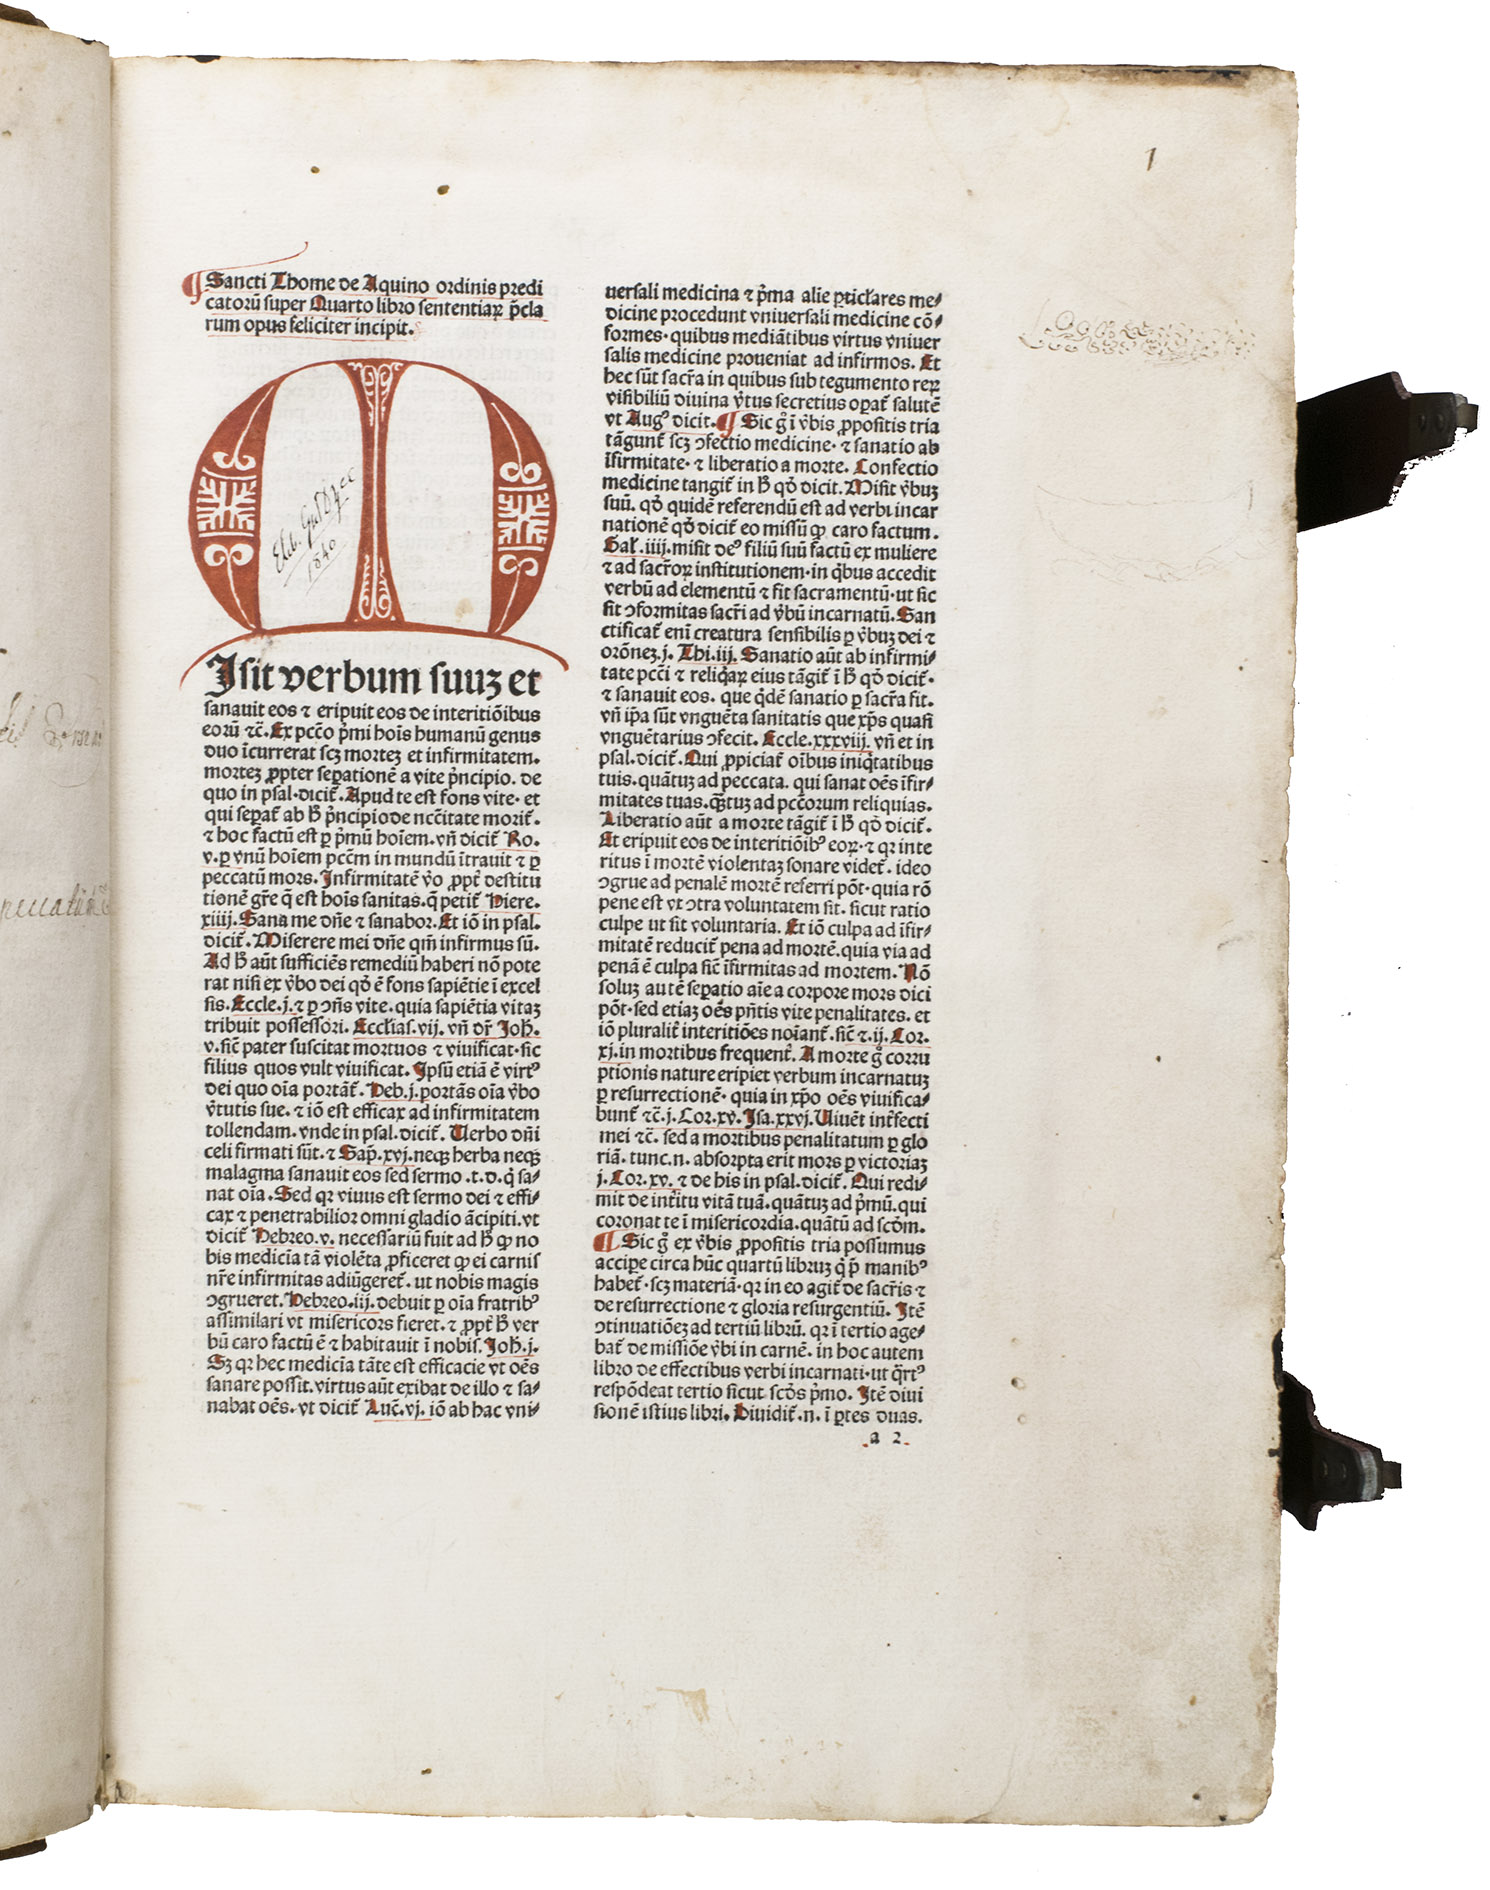 1
Sancti Thome de Aquino ordinis predi
catorū super Quarto libro sententiaꝝ p̄cla
rum opus feliciter incipit.
M
1840
Isit verbum suuꝫ et
sanauit eos ⁊ eripuit eos de interitiōibus
eorū ⁊c̄. Ex pccō p̄mi hoīs humanū genus
duo īcurrerat scꝫ morteꝫ et infirmitatem.
morteꝫ ꝓpter seꝑationē a vite p̄ncipio. de
quo in psal. dicit̄. Apud te est fons vite. et
qui seꝑat̄ ab h̄ p̄ncipio de nccītate morit̄.
⁊ hoc factū est ꝑ p̄mū hoīem. vn̄ dicit̄ Ro.
v. ꝑ vnū hoīem pccm̄ in mundū ītrauit ⁊ ꝑ
peccatū mors. Infirmitatē v̄o ꝓpt̄ destitu
tionē gr̄e q̄ est hoīs sanitas. q̄ petit̄ Hiere.
xiiij. Sana me dn̄e ⁊ sanabor. Et iō in psal.
dicit̄. Miserere mei dn̄e qm̄ infirmus sū.
Ad h̄ aūt sufficiēs remediū haberi nō pote
rat nisi ex v̄bo dei qd̄ ē fons sapiētie ī excel
sis. Eccle. j. ⁊ ꝑ ↄn̄s vite. quia sapiētia vitaꝫ
tribuit possessori. Eccl̄ias. vij. vn̄ dr̄ Joh̄.
v. sic̄ pater suscitat mortuos ⁊ viuificat. sic
filius quos vult viuificat. Ipsū etiā ē virtꝰ
dei quo oīa portāt̄. Heb. j. portās oīa v̄bo
v̄tutis sue. ⁊ iō est efficax ad infirmitatem
tollendam. vnde in psal. dicit̄. Uerbo dn̄i
celi firmati sūt. ⁊ Sap̄. xvj. neqꝫ herba neqꝫ
malagma sanauit eos sed sermo .t. d. q̄ sa-
nat oīa. Sed qꝛ viuus est sermo dei ⁊ effi-
cax ⁊ penetrabilior omni gladio ācipiti. vt
dicit̄ Hebreo. v. necessariū fuit ad h̄ ꝙ no
bis medicīa tā violēta ꝓficeret ꝙ ei carnis
nr̄e infirmitas adiūgeret̄. ut nobis magis
ↄgrueret. Hebreo. iij. debuit ꝑ oīa fratribꝰ
assimilari vt misericors fieret. ⁊ ꝓpt̄ h̄ ver
bū caro factū ē ⁊ habitauit ī nobis. Joh̄. j.
Sꝫ qꝛ hec medicīa tāte est efficacie vt oēs
sanare possit. virtus aūt exibat de illo ⁊ sa-
nabat oēs. vt dicit̄ Luc̄. vj. iō ab hac vni-
uersali medicina ⁊ p̄ma alie ꝑticl̄ares me-
dicine procedunt vniuersali medicine cō-
formes. quibus mediātibus virtus vniuer
salis medicine proueniat ad infirmos. Et
hec sūt sacr̄a in quibus sub tegumento reꝝ
visibiliū diuina v̄tus secretius oꝑat̄ salutē
vt Augꝰ dicit. Sic g̊ ī v̄bis ꝓpositis tria
tāgunt̄ scꝫ ↄfectio medicine. ⁊ sanatio ab
īfirmitate. ⁊ liberatio a morte. Confectio
medicine tangit̄ in h̄ qd̄ dicit. Misit v̄buꝫ
suū. qd̄ quidē referendū est ad verbi incar
nationē qd̄ dicit̄ eo missū ꝙ caro factum.
Gal̄. iiij. misit deꝰ filiū suū factū ex muliere
⁊ ad sacr̄oꝝ institutionem. in q̄bus accedit
verbū ad elementū ⁊ fit sacramentū. ut sic
sit ↄformitas sacr̄i ad v̄bū incarnatū. San
ctificat̄ eni creatura sensibilis ꝑ v̄buꝫ dei ⁊
orōneꝫ. j. Thi. iij. Sanatio aūt ab infirmi-
tate pcc̄i ⁊ reliq̄aꝝ eius tāgit̄ ī h̄ qd̄ dicit̄.
⁊ sanauit eos. que q̄dē sanatio ꝑ sacr̄a fit.
vn̄ ip̄a sūt vnguēta sanitatis que xp̄s quasi
vnguētarius ↄfecit. Eccle. xxxviij. vn̄ et in
psal. dicit̄. Qui ꝓpiciat̄ oībus iniq̄tatibus
tuis. quātuꝫ ad peccata. qui sanat oēs īfir-
mitates tuas. q̄ꝫtuꝫ ad pcc̄orum reliquias.
Liberatio aūt a morte tāgit̄ ī h̄ qd̄ dicit̄.
Et eripuit eos de interitiōibꝰ eoꝝ. ⁊ qꝛ inte
ritus ī mortē violentaꝫ sonare videt̄. ideo
ↄgrue ad penalē mortē referri pōt. quia rō
pene est vt ↄtra voluntatem sit. sicut ratio
culpe ut sit voluntaria. Et iō culpa ad īfir-
mitatē reducit̄ pena ad mortē. quia via ad
penā ē culpa sic̄ īfirmitas ad mortem. Nō
soluꝫ autē seꝑatio aīe a corpore mors dici
pōt. sed etiaꝫ oēs pn̄tis vite penalitates. et
iō pluralit̄ interitiōes noīant̄. sic̄ ⁊ .ij. Cor.
xj. in mortibus frequent̄. A morte g̊ corru
ptionis nature eripiet verbum incarnatuꝫ
ꝑ resurrectionē. quia in xp̄o oēs viuifica-
bunt̄ ⁊c̄. j. Cor. xv. Isa. xxvj. Uiuēt int̄fecti
mei ⁊c̄. sed a mortibus penalitatum ꝑ glo
riā. tunc .n. absorpta erit mors ꝑ victoriaꝫ
j. Cor. xv. ⁊ de his in psal. dicit̄. Qui redi-
mit de int̄itu vitā tuā. quātuꝫ ad p̄mū. qui
coronat te ī misericordia. quātū ad scd̄m.
Sic g̊ ex v̄bis ꝓpositis tria possumus
accipe circa hūc quartū libruꝫ q̄ p̄ manibꝰ
habet̄. scꝫ materiā. qꝛ in eo agit̄ de sacr̄is ⁊
de resurrectione ⁊ gloria resurgentiū. Itē
ↄtinuatiōeꝫ ad tertiū librū. qꝛ ī tertio age-
bat̄ de missiōe v̄bi in carnē. in hoc autem
libro de effectibus verbi incarnati. ut q̄rtꝰ
respōdeat tertio sicut scd̄s p̄mo. Itē diui
sionē istius libri. Diuidit̄ .n. ī ꝑtes duas.
a 2